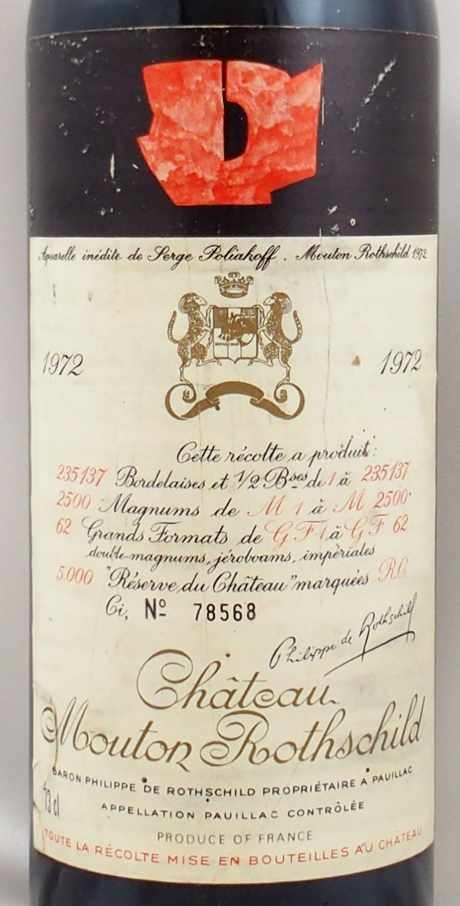 Aquarelle inédite de Serge Poliakoff . Mouton Rothschild 1972
1972 1972
Cette récolte a produit:
235137 Bordelaises et 1/2 Bses de 1 à 235137
2500 Magnums de M 1 à M 2500
62 Grands Formats de GF 1 à GF 62
double-magnums, jéroboams, impériales
5.000 "Réserve du Château" marquées R.C.
Ci, Nº 78568
Philippe de Rothschild
Château
Mouton Rothschild
BARON PHILIPPE DE ROTHSCHILD PROPRIÉTAIRE A PAUILLAC
73 cl
APPELLATION PAUILLAC CONTRÔLÉE
PRODUCE OF FRANCE
TOUTE LA RÉCOLTE MISE EN BOUTEILLES AU CHÂTEAU